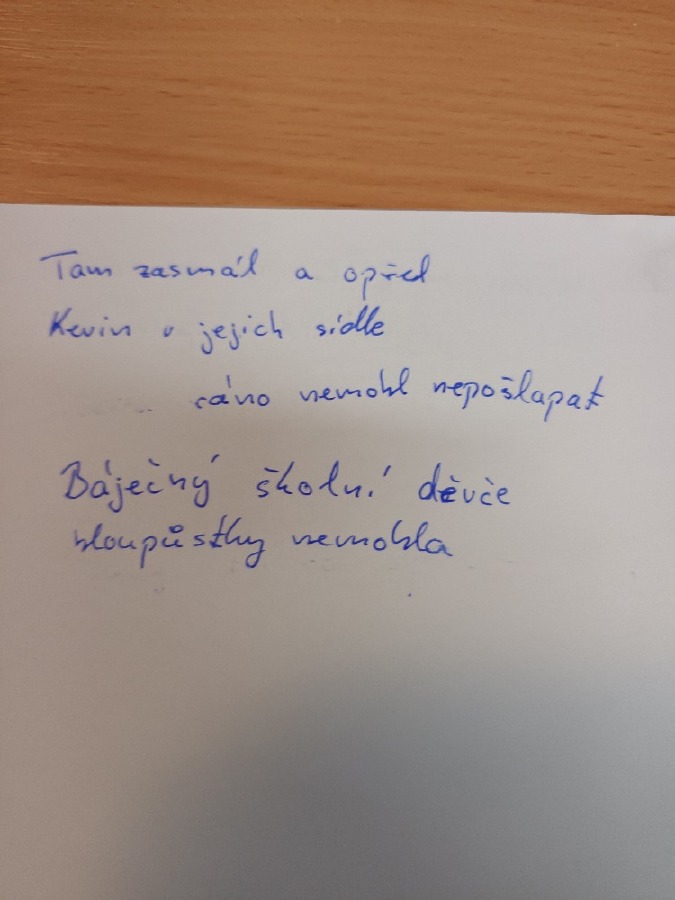 Tam zasmál a opřel
Kevin v jejich sídle
ráno nemohl nepošlapat
Báječný školní děvče
hloupůstky nemohla